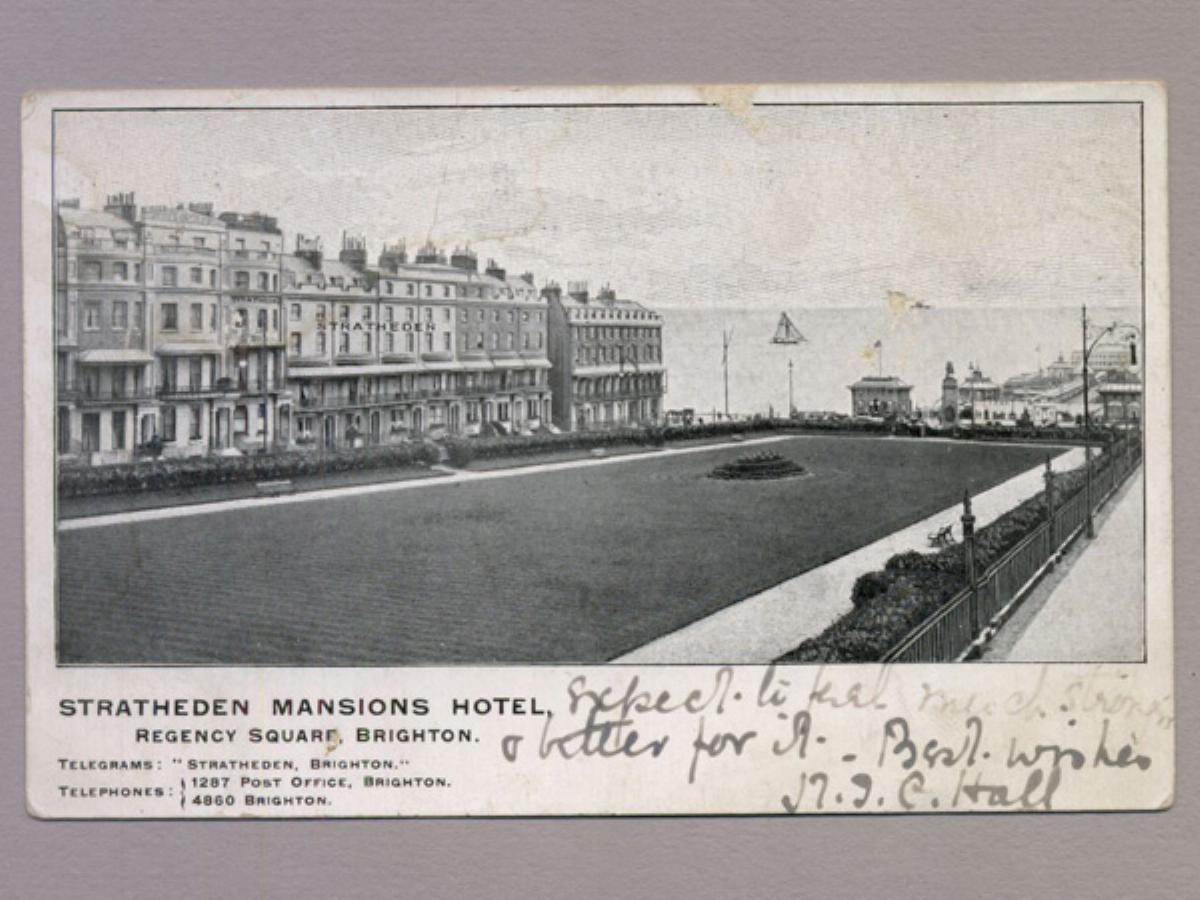 STRATHEDEN
STRATHEDEN MANSIONS HOTEL,
REGENCY SQUARE, BRIGHTON.
TELEGRAMS: "STRATHEDEN, BRIGHTON."
TELEPHONES: { 1287 POST OFFICE, BRIGHTON.
4860 BRIGHTON.
expect to feel much stronger
& better for it. - Best wishes
C. Hall